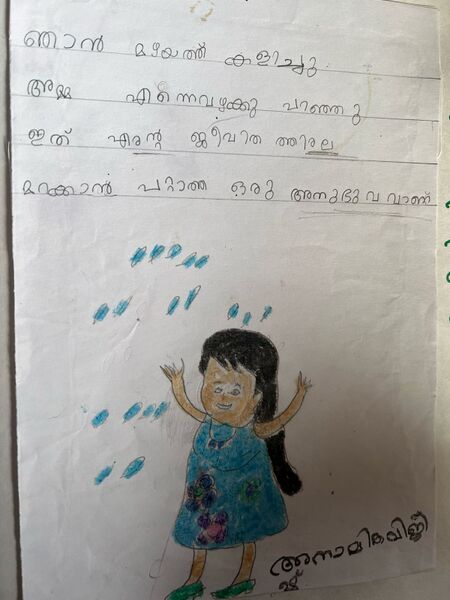 ഞാൻ മഴയത്ത് കളിച്ചു.
അമ്മ എന്നെവഴക്കു പറഞ്ഞു
ഇത് എരന്റ ജീവിത ത്തിരല
മറക്കാൻ പറ്റാത്ത ഒരു അനുഭുവ വാണ്
അനാമികവിജീ